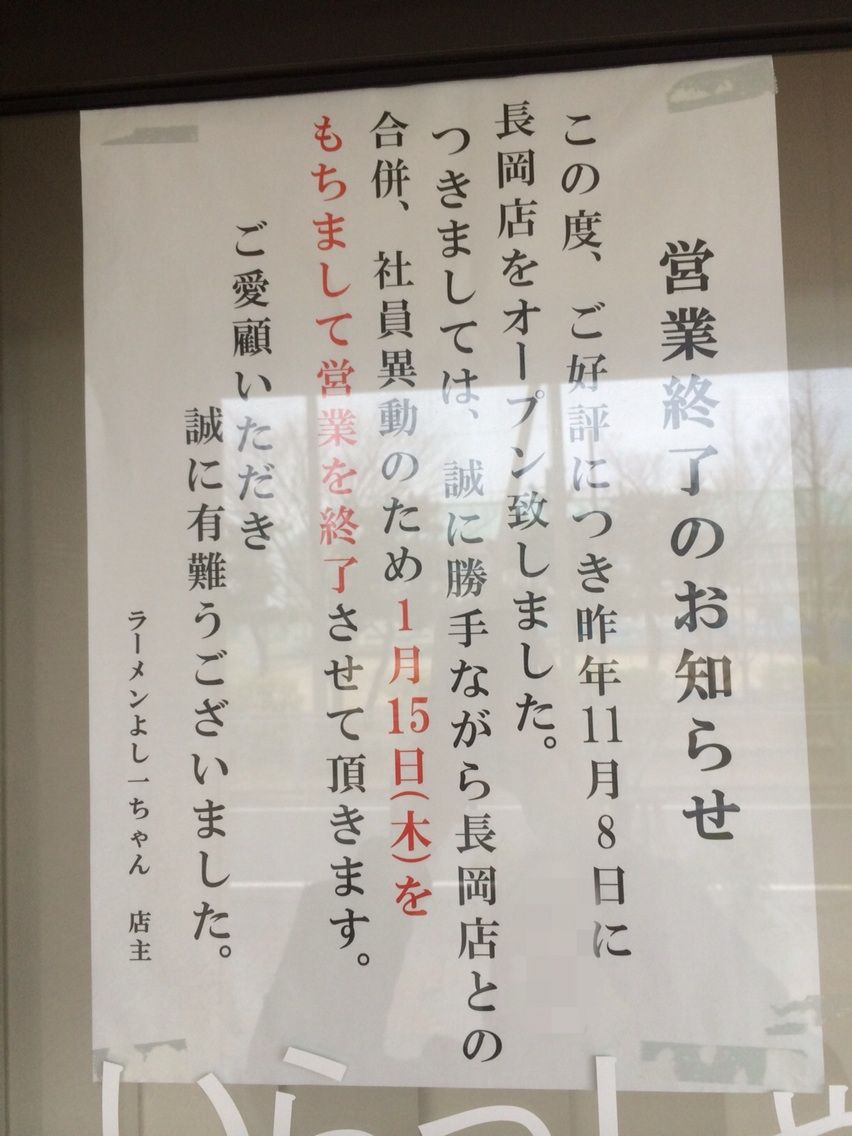 営業終了のお知らせ
この度、ご好評につき昨年11月8日に
長岡店をオープン致しました。
つきましては、誠に勝手ながら長岡店との
合併、社員異動のため1月15日(木)を
もちまして営業を終了させて頂きます。
ご愛顧いただき
誠に有難うございました。
ラーメンよし一ちゃん 店主